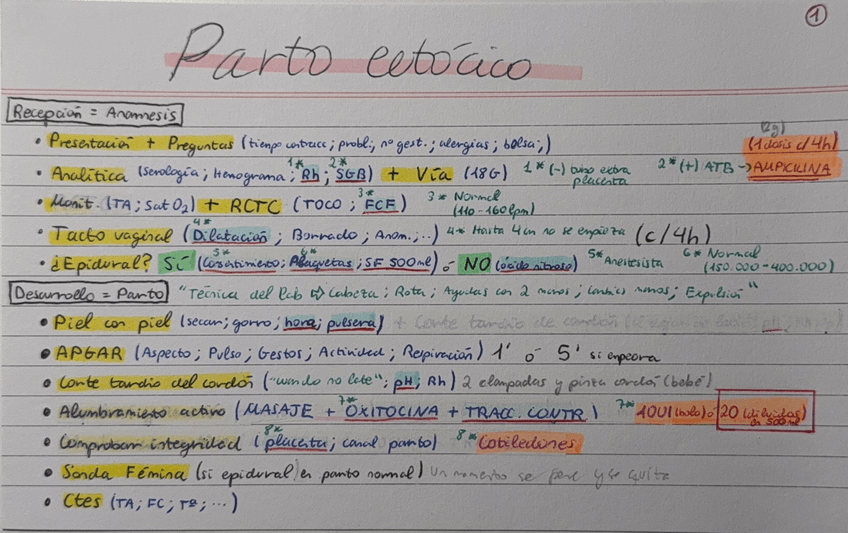 1
Parto eutócico
Recepción = Anamnesis
(2g)
• Presentación + Preguntas (tiempo contracc; probl; nº gest.; alergias; bolsa;) (1 dosis c/4h)
• Analítica (serología; Hemograma; 1* Rh; 2* SGB) + Vía (18G) 1* (-) tubo extra placenta 2* (+) ATB → AMPICILINA
• Monit. (TA; Sat O2) + RCTC (TOCO; 3* FCF) 3* Normal (110-160 lpm)
• Tacto vaginal (4* Dilatación; Borrado; Anom;..) 4* Hasta 4cm no se empieza (c/4h)
• ¿Epidural? Sí (5* Consentimiento; 6* Plaquetas; SF 500ml) ó NO (óxido nitroso) 5* Anestesista 6* Normal (150.000-400.000)
Desarrollo = Parto "Técnica del Bob ⇨ Cabeza; Rota; Ayudas con 2 manos; Cambias manos; Expulsión"
• Piel con piel (secar; gorro; hora; pulsera) + Corte tardío de cordón
• APGAR (Aspecto; Pulso; Gestos; Actividad; Respiración) 1' ó 5' si empeora
• Corte tardío del cordón ("cuando no late"; pH; Rh) 2 clampadas y pinza cordón (bebé)
• Alumbramiento activo (MASAJE + 7* OXITOCINA + TRACC. CONTR) 7* 10UI (bolo) ó 20 (diluidas) en 500ml
• Comprobar integridad (8* placenta; canal parto) 8* Cotiledones
• Sonda Fémina (si epidural) en parto normal) Un momento se pone y se quita
• Ctes (TA; FC; Tª; ...)